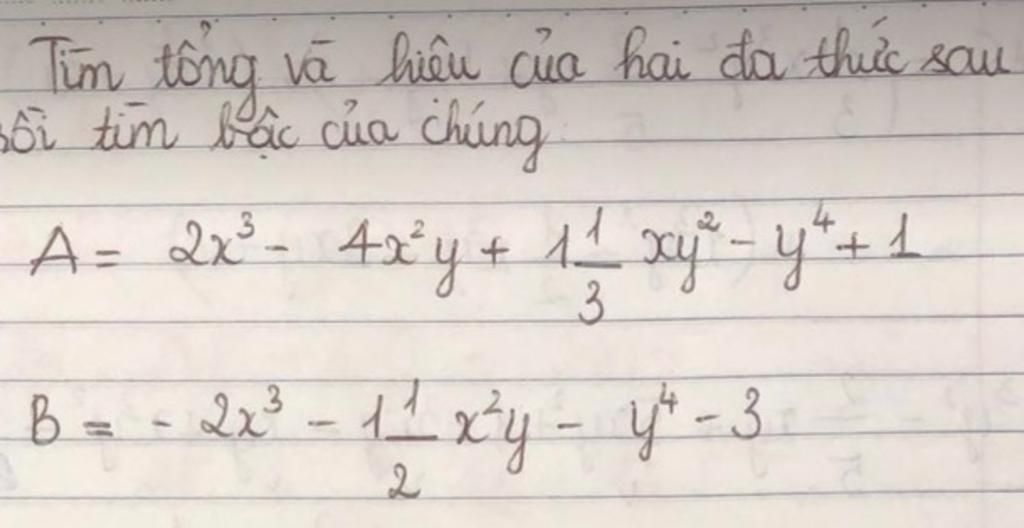 Tìm tổng và hiệu của hai đa thức sau
rồi tìm bậc của chúng
A = 2x³ - 4x²y + 1 1/3 xy² - y⁴ + 1
B = - 2x³ - 1 1/2 x²y - y⁴ - 3